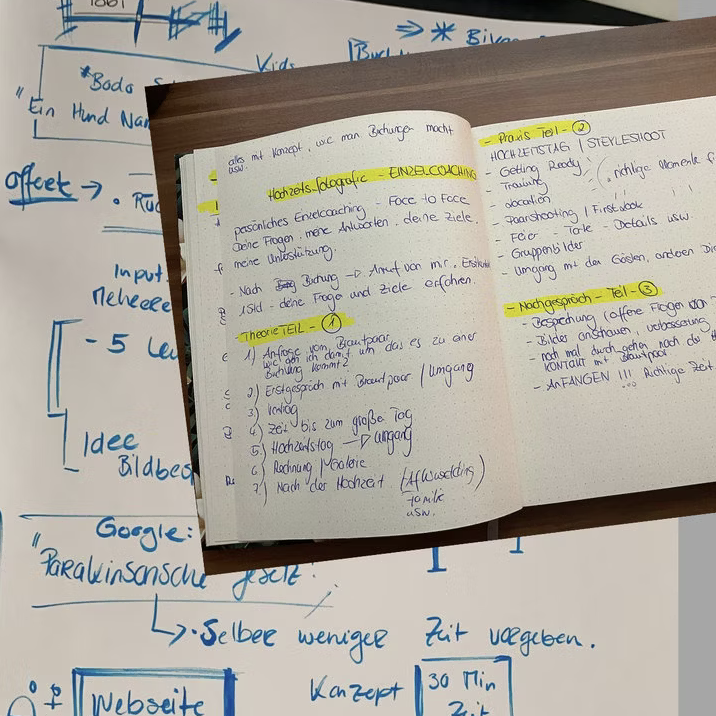 ⇒ * 
Kids
*Bodo
"Ein Hund
Offeek →
Input
- 5
Idee
Google:
"Parakinsonsche Gesetz".
↳ • Selber weniger Zeit vorgeben.
Webseite
Konzept
30 Min
Zeit
alles mit Konzept, wie man Buchungen macht
usw.
Hochzeitsfotografie - EINZELCOACHING
persönliches Enzelcoaching - Face to Face
Deine Fragen, meine Antworten, deine Ziele,
meine Unterstützung.
- Nach Buchung → Anruf von mir,
1 Std - deine Frage und Ziele erfahren.
Theorie TEIL - ①
1) Anfrage vom Brautpaar
wie geh ich damit um das es zu einer
Buchung kommt?
2) Erstgespräch mit Brautpaar / Umgang
3) Vertrag
4) Zeit bis zum große Tag
5) Hochzeitstag → Umgang
6) Rechnung / Galerie
7) Nach der Hochzeit
usw.
- Praxis Teil - ②
HOCHZEITSTAG / STEYLESHOOT
- Getting Ready
- Trauung
- Location
- Paarshooting / First look
- Feier - Torte - Details usw.
- Gruppenbilder
- Umgang mit den Gästen, anderen
richtige Momente
- Nachgespräch - Teil - ③
- Besprechung (offene Fragen
- Bilder anschauen, verbesserung
- noch mal durch gehen nach der
KONTAKT mit Brautpaar
- ANFANGEN !!! Richtige Zeit